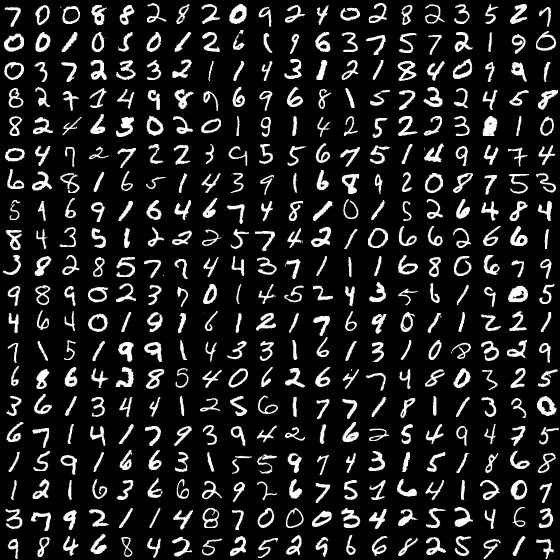 7 0 0 8 8 2 8 2 0 9 2 4 0 2 8 2 3 5 2 7
0 0 1 0 5 0 1 2 6 1 9 6 3 7 5 7 2 1 9 0
0 3 7 2 3 3 2 1 1 4 3 1 2 1 8 4 0 9 9 1
8 2 7 1 4 9 8 9 6 9 6 8 1 5 7 3 2 4 5 8
8 2 4 6 3 0 2 0 1 9 1 4 2 5 2 2 3 1 0
0 4 7 2 7 2 2 3 9 5 5 6 7 5 1 4 9 4 7 4
6 2 8 1 6 5 1 4 3 9 1 6 8 9 2 0 8 7 5 3
5 1 6 9 1 6 4 6 7 4 8 1 0 1 5 2 6 4 8 4
8 4 3 5 1 2 2 2 5 7 4 2 1 0 6 6 2 6 6 1
3 8 2 8 5 7 9 4 4 3 7 1 1 1 6 8 0 6 7 9
9 8 9 0 2 3 7 0 1 4 5 2 4 3 5 6 1 9 0 5
4 6 4 0 1 9 1 6 1 2 1 7 6 9 0 1 1 2 2 1
7 1 5 1 9 9 1 4 3 3 1 6 1 3 1 0 8 3 2 9
6 8 6 4 2 8 5 4 0 6 2 6 4 7 4 8 0 3 2 5
3 6 1 3 4 4 1 2 5 6 1 7 7 1 8 1 1 3 3 0
6 7 1 4 1 7 9 3 9 4 2 1 6 2 5 4 9 4 7 5
1 5 9 1 6 6 3 1 5 5 9 7 4 3 1 5 1 8 6 8
1 2 1 6 3 6 6 2 9 2 6 7 5 1 6 4 1 2 0 7
3 7 9 2 1 1 4 8 7 0 0 0 3 4 2 5 2 4 6 3
9 8 4 6 8 4 2 5 2 5 2 9 6 6 8 2 5 8 1 7